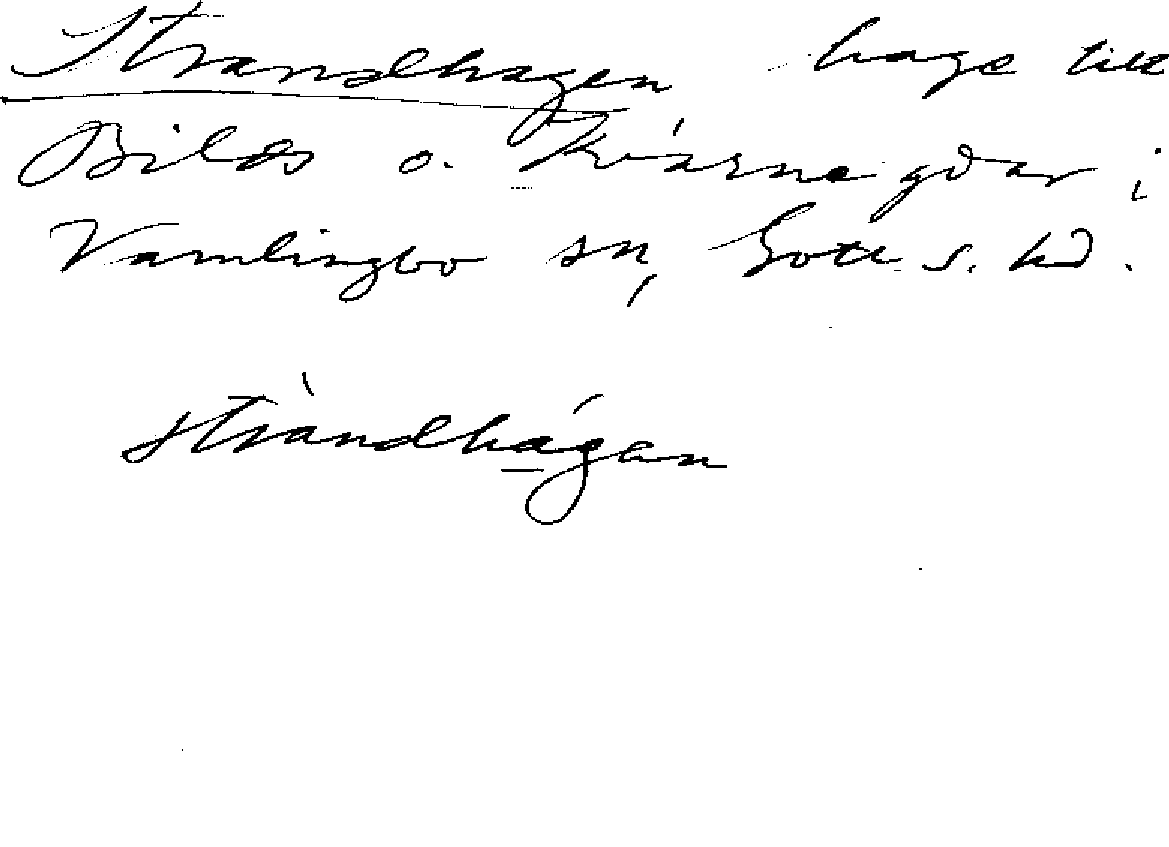 Strandhagen hage till
Bilds o. Kvarne gdar i
Vamlingbo sn, Gotl. s. hd.
stràndhágan